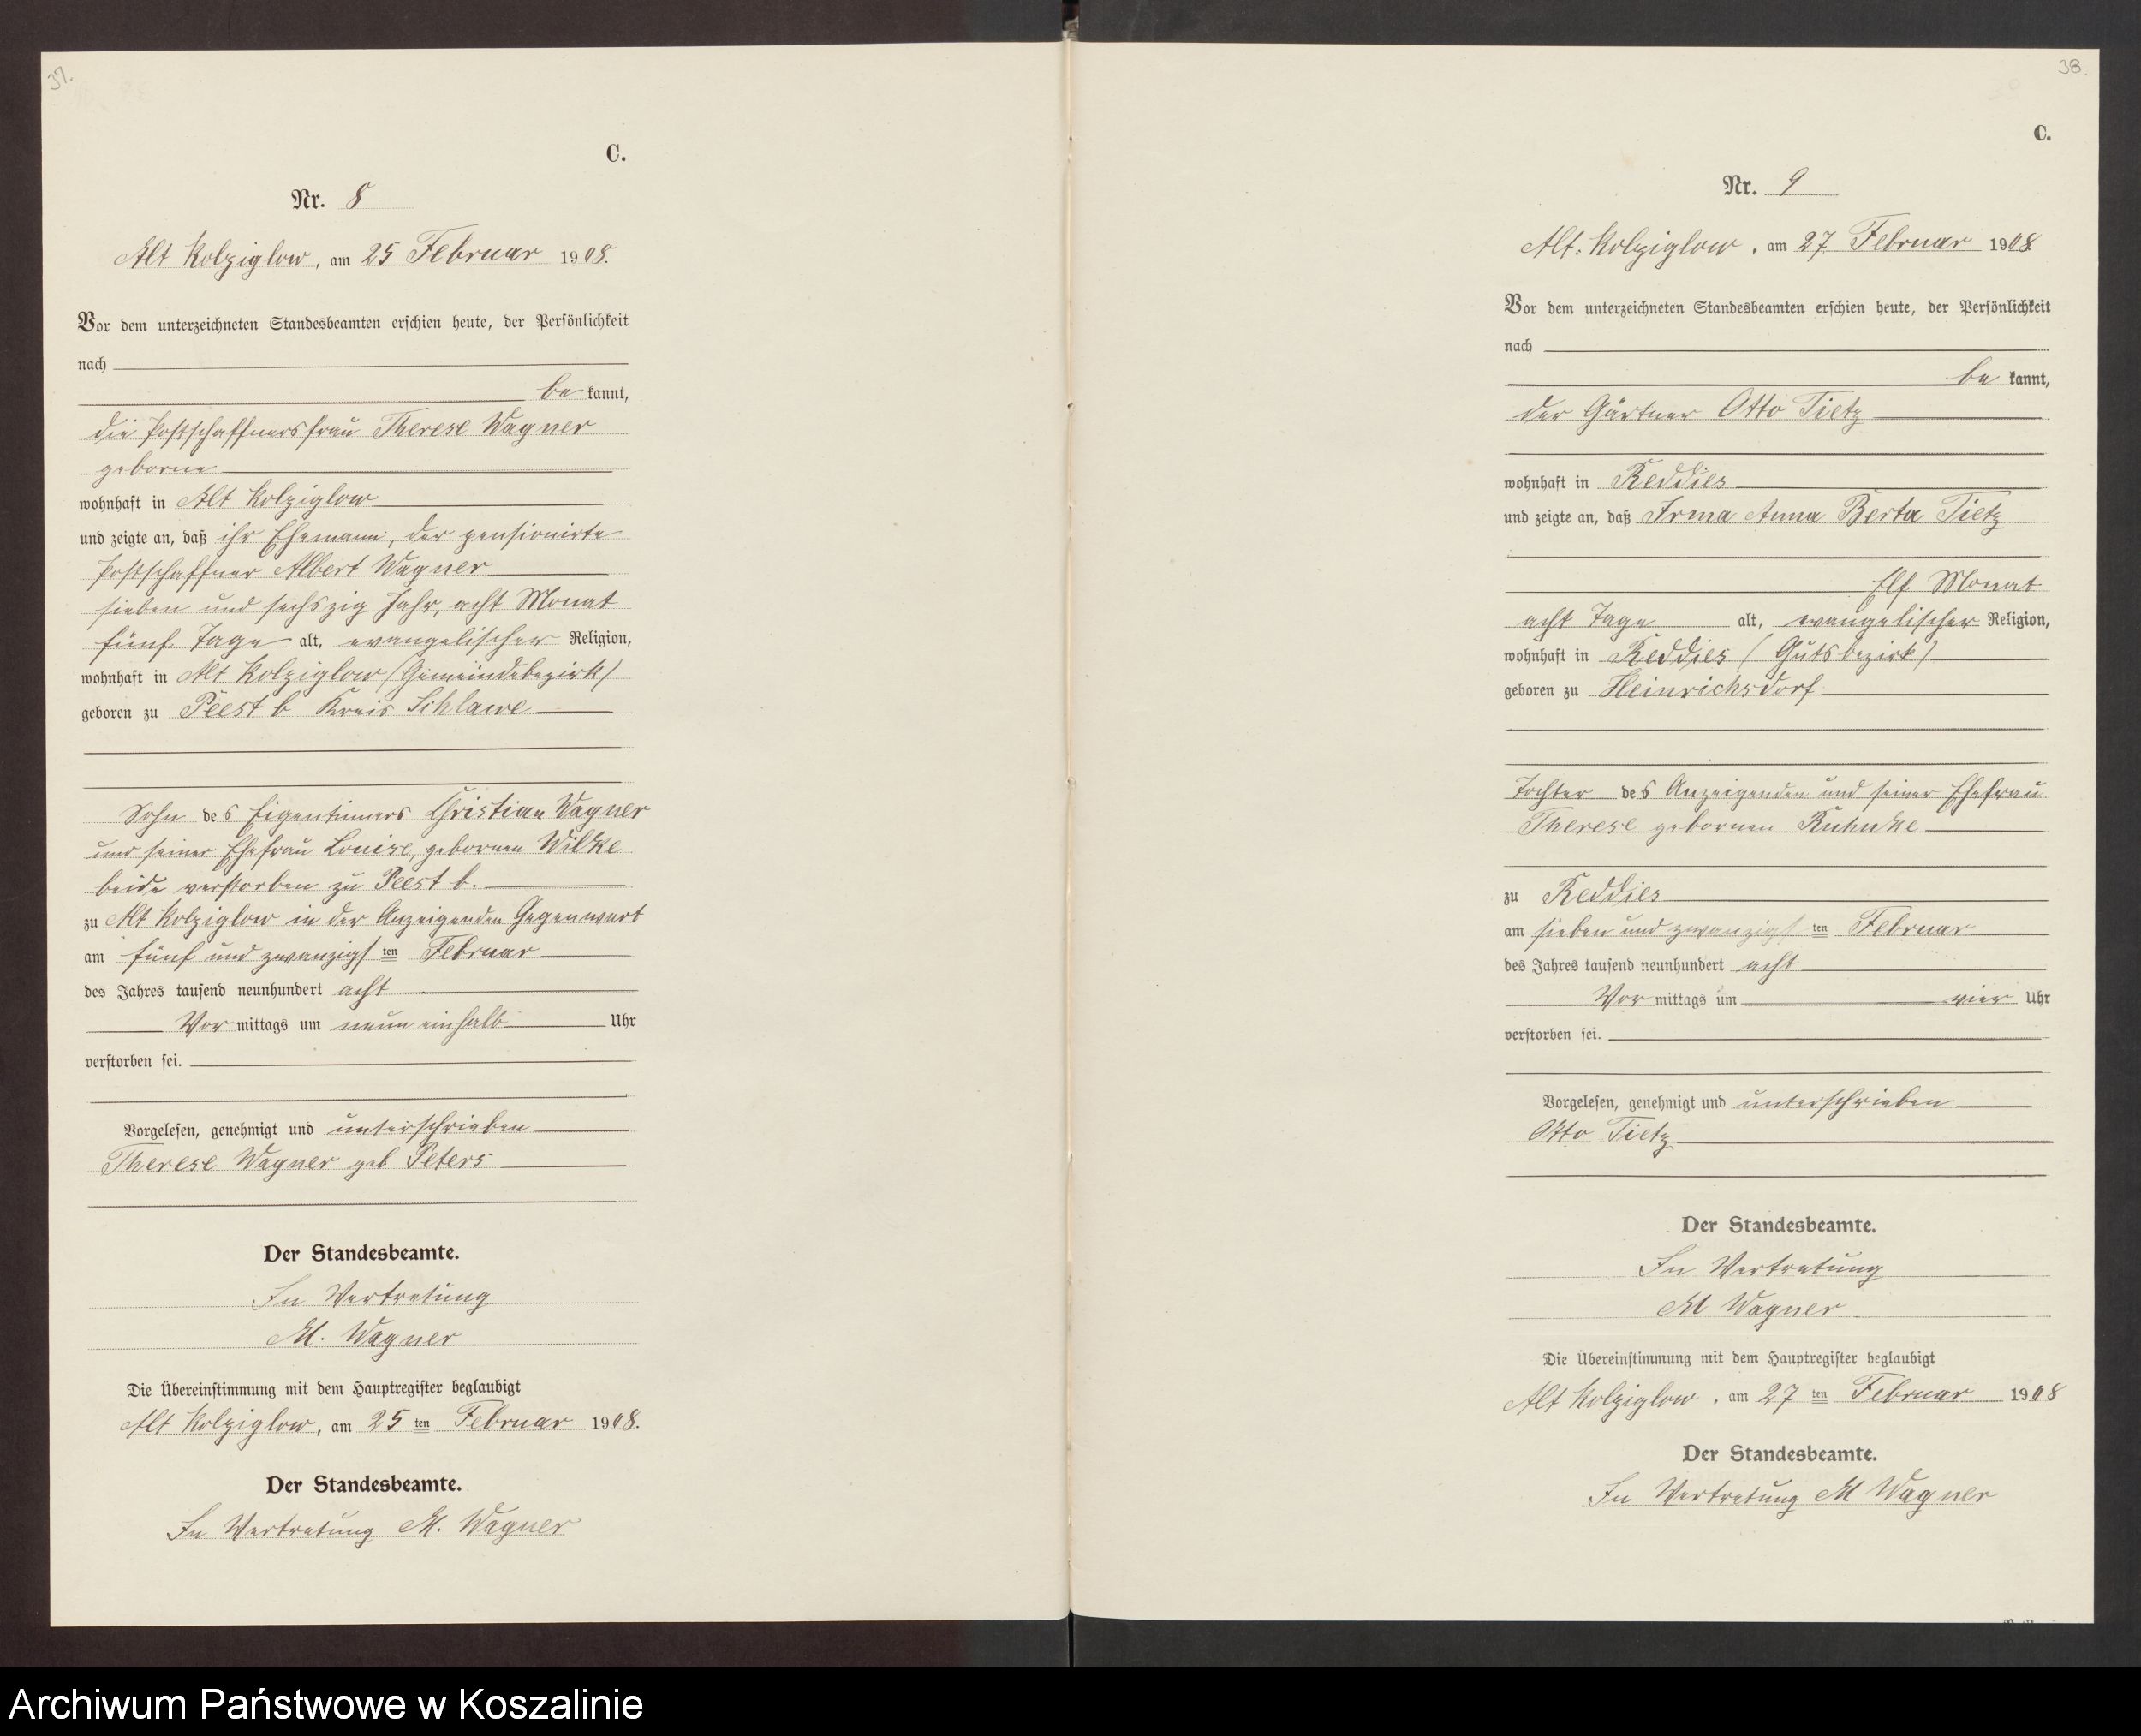 37.
C.
Nr. 8
Alt Kolziglow, am 25 Februar 1908.
Vor dem unterzeichneten Standesbeamten erschien heute, der Persönlichkeit
nach
be kannt,
die Postschaffnersfrau Therese Wagner
geborne
wohnhaft in Alt Kolziglow
und zeigte an, daß ihr Ehemann, der pensionirte
Postschaffner Albert Wagner
sieben und sechszig Jahr, acht Monat
fünf Tage alt, evangelischer Religion,
wohnhaft in Alt Kolziglow (Gemeindebezirk)
geboren zu Peest b Kreis Schlawe
Sohn des Eigentümers Christian Wagner
und seiner Ehefrau Louise, gebornen Wilke
beide verstorben zu Peest b.
zu Alt Kolziglow in der Anzeigenden Gegenwart
am fünf und zwanzigsten Februar
des Jahres tausend neunhundert acht
Vor mittags um neun einhalb Uhr
verstorben sei.
Vorgelesen, genehmigt und unterschrieben
Therese Wagner geb Peters
Der Standesbeamte.
In Vertretung
M. Wagner
Die Übereinstimmung mit dem Hauptregister beglaubigt
Alt Kolziglow, am 25 ten Februar 1908.
Der Standesbeamte.
In Vertretung M. Wagner
38.
C.
Nr. 9
Alt: Kolziglow, am 27 Februar 1908
Vor dem unterzeichneten Standesbeamten erschien heute, der Persönlichkeit
nach
be kannt,
der Gärtner Otto Tietz
wohnhaft in Reddies
und zeigte an, daß Irma Anna Berta Tietz
Elf Monat
acht Tage alt, evangelischer Religion,
wohnhaft in Reddies (Gutsbezirk)
geboren zu Heinrichsdorf
Tochter des Anzeigenden und seiner Ehefrau
Therese gebornen Kuhnke
zu Reddies
am sieben und zwanzigsten Februar
des Jahres tausend neunhundert acht
Vor mittags um vier Uhr
verstorben sei.
Vorgelesen, genehmigt und unterschrieben
Otto Tietz
Der Standesbeamte.
In Vertretung
M Wagner
Die Übereinstimmung mit dem Hauptregister beglaubigt
Alt Kolziglow, am 27 ten Februar 1908
Der Standesbeamte.
In Vertretung M Wagner
Archiwum Państwowe w Koszalinie